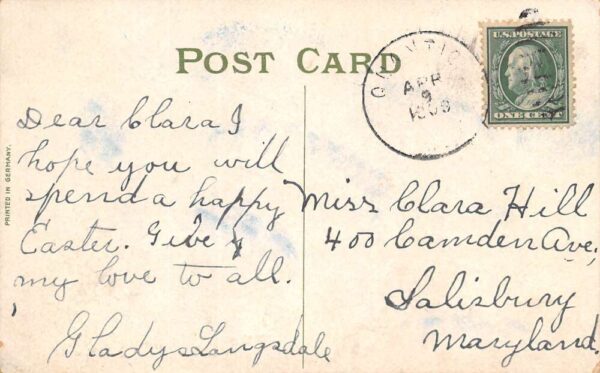 POST CARD
PRINTED IN GERMANY.
QUANTICO
APR
9
1909
U.S. POSTAGE
ONE CENT
Dear Clara I
hope you will
spend a happy
Easter. Give
my love to all.
Gladys Langsdale
Miss Clara Hill
400 Camden Ave,
Salisbury
Maryland.